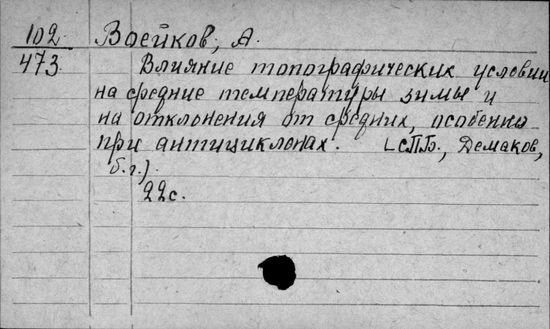 102 Воейков, А.
473 Влияние топографических условий
на средние температуры зимы и
на отклонения от средних, особенно
при антициклонах. [СПБ., Демаков,
б.г.)
22с.